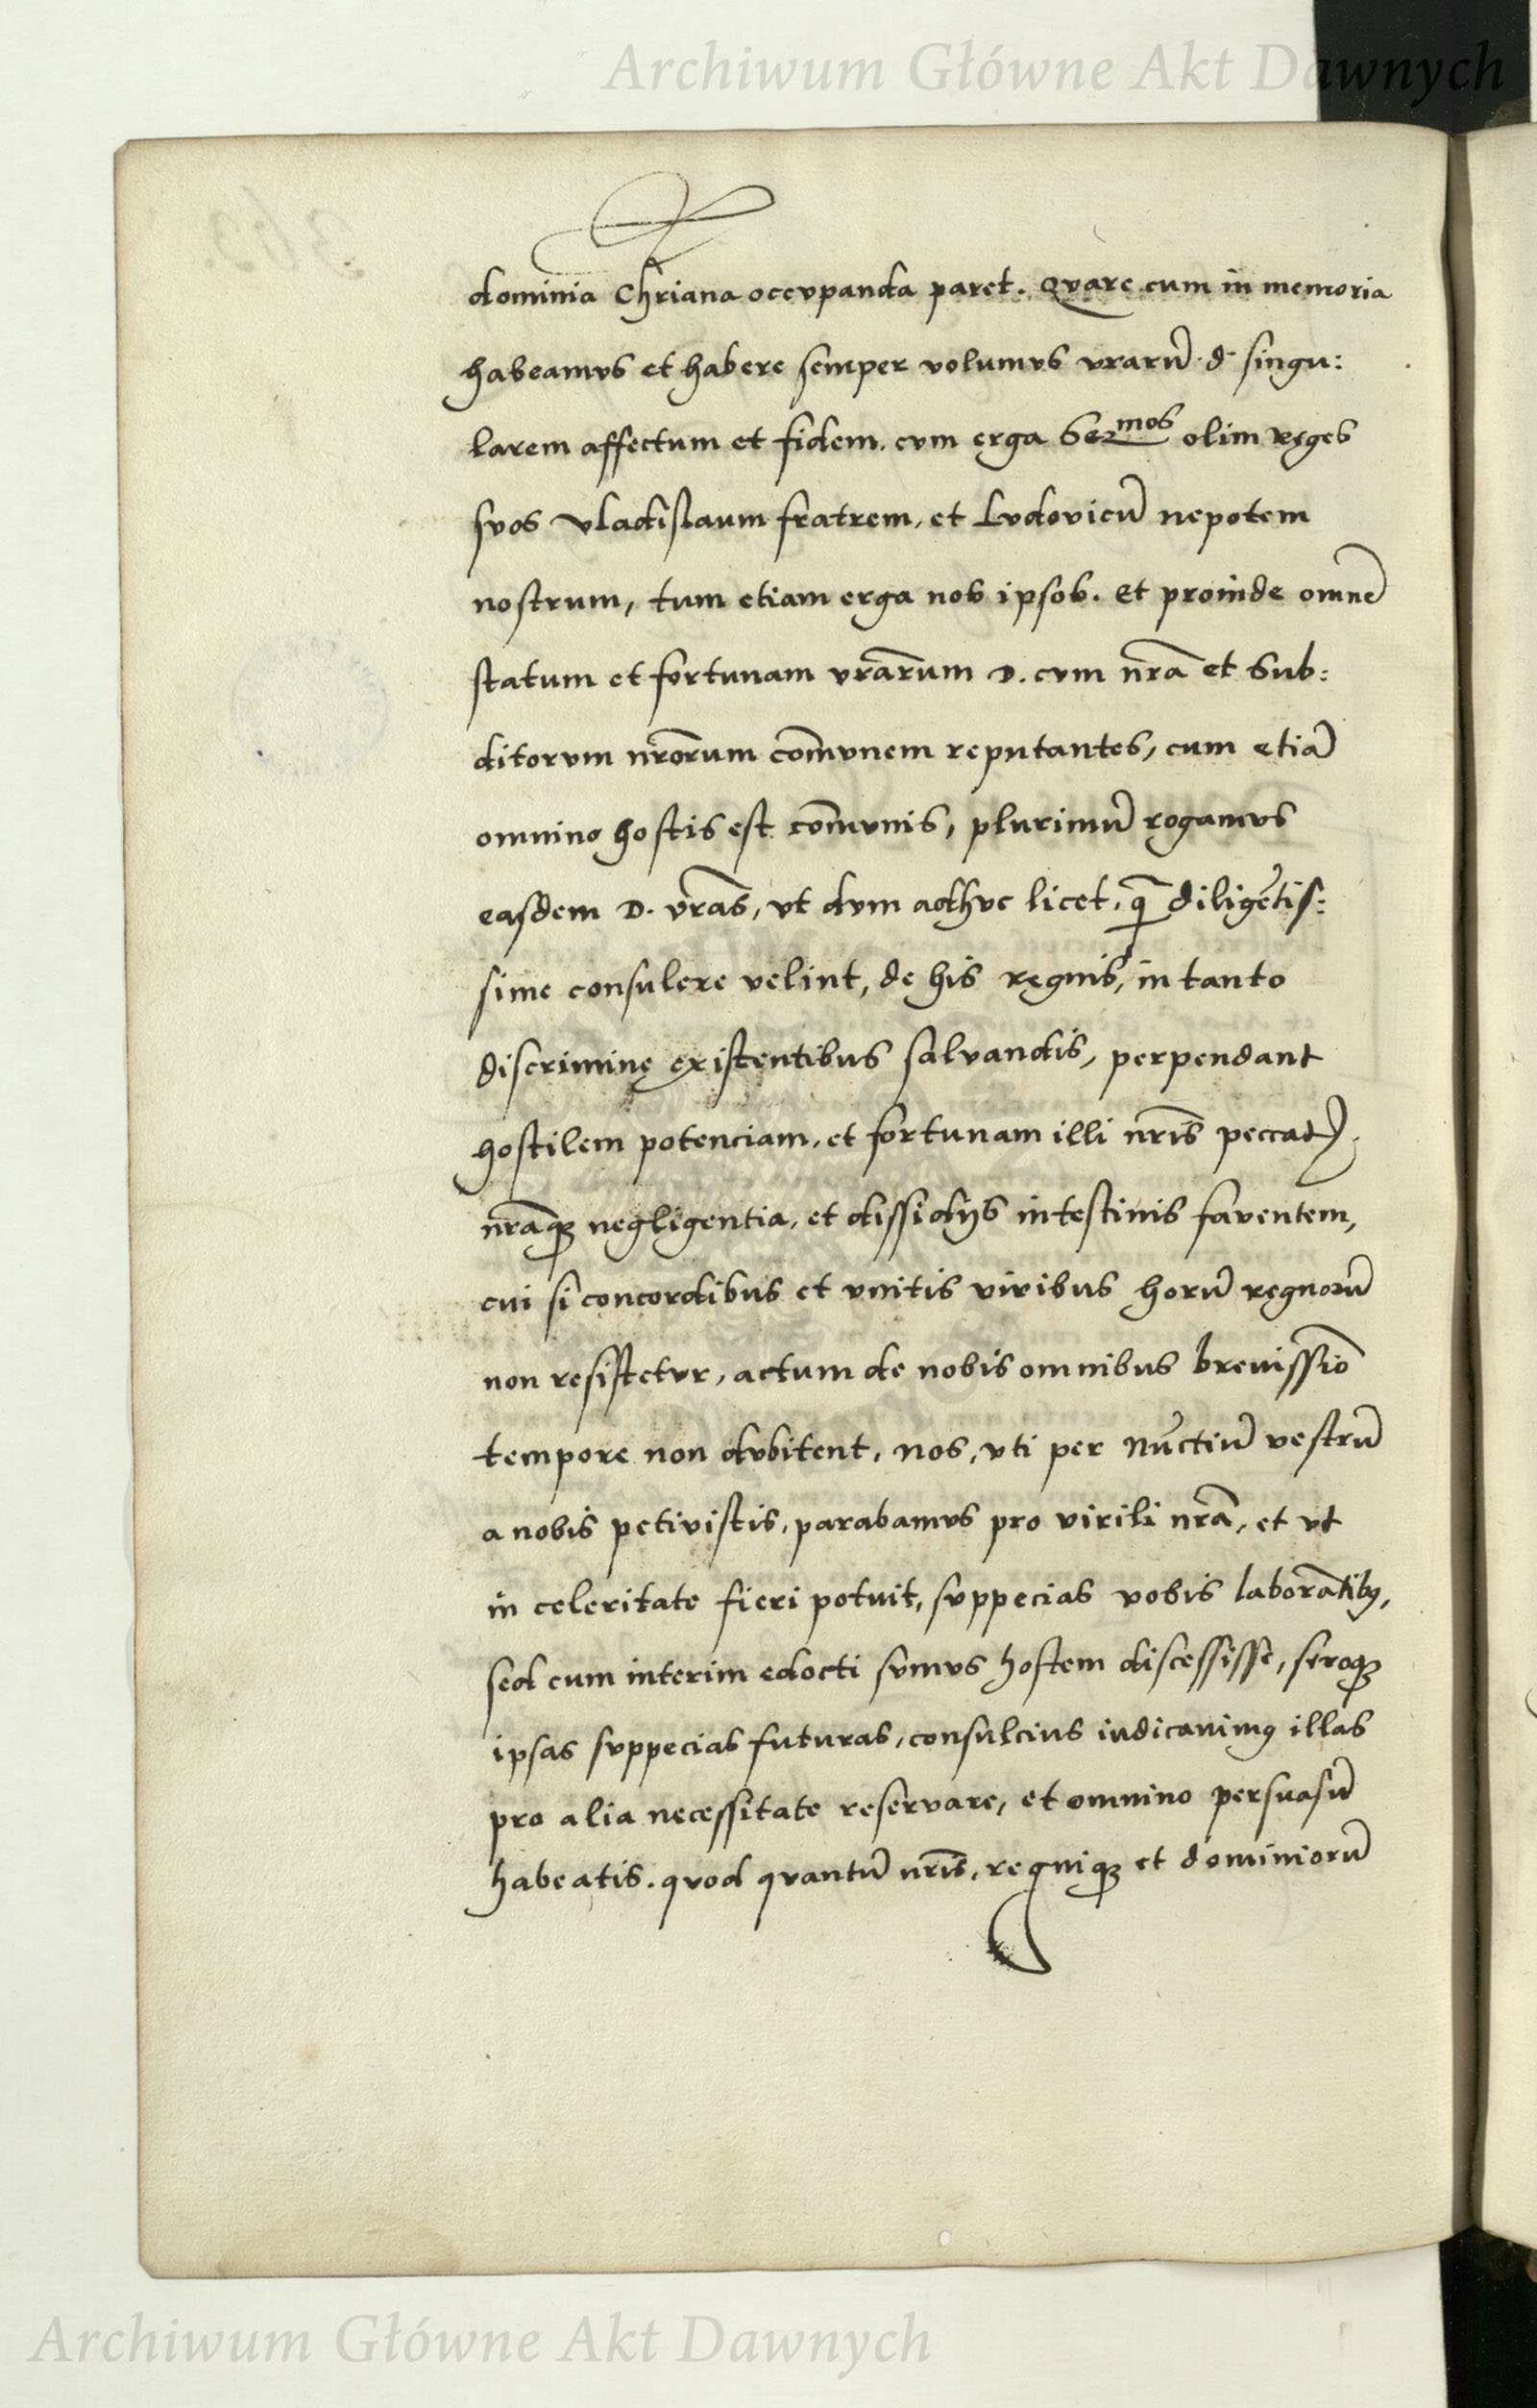 Archiwum Główne Akt Dawnych
dominia Chriana occvpanda paret. Qvare cum in memoria
habeamvs et habere semper volumvs vrarũ d. singu:
larem affectum et fidem. cvm erga Ser^mos olim reges
svos vladislaum fratrem, et Lvdovicũ nepotem
nostrum, tum etiam erga nos ipsos. Et proinde omnẽ
statum et fortunam vrãrum D. cvm nrã et Sub:
ditorvm nrõrum com̃vnem reputantes, cum etiã
omnino hostis est com̃vnis, plurimũ rogamvs
easdem D. vrãs, vt dvm adhvc licet, q̃ diligẽtis:
sime consulere velint, de his regnis, in tanto
discrimine existentibus salvandis, perpendant
hostilem potenciam, et fortunam illi nrĩs peccatꝭ,
nrãqꝫ negligentia, et dissidijs intestinis faventem,
cui si concordibus et vnitis viribus horũ regnorũ
non resistetvr, actum de nobis omnibus breuissiõ
tempore non dvbitent, nos, vti per nũctiũ vestrũ
a nobis petivistis, parabamvs pro virili nrã, et vt
in celeritate fieri potuit, svppecias vobis laborãtibꝯ,
sed cum interim edocti svmvs hostem discessisse, seroqꝫ
ipsas svppecias futuras, consulcius iudicauimꝯ illas
pro alia necessitate reservare, et omnino persuasũ
habeatis. qvod qvantũ nrĩs, regniqꝫ et dominiorũ
Archiwum Główne Akt Dawnych